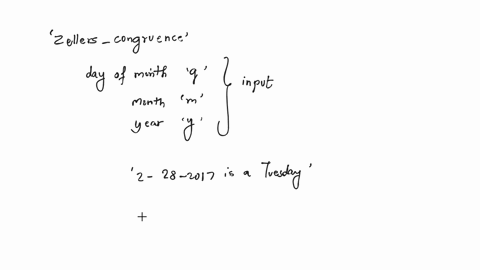 'Zellers_congruence'
day of month 'q'
month 'm'
year 'y'
input
'2-28-2017 is a Tuesday'